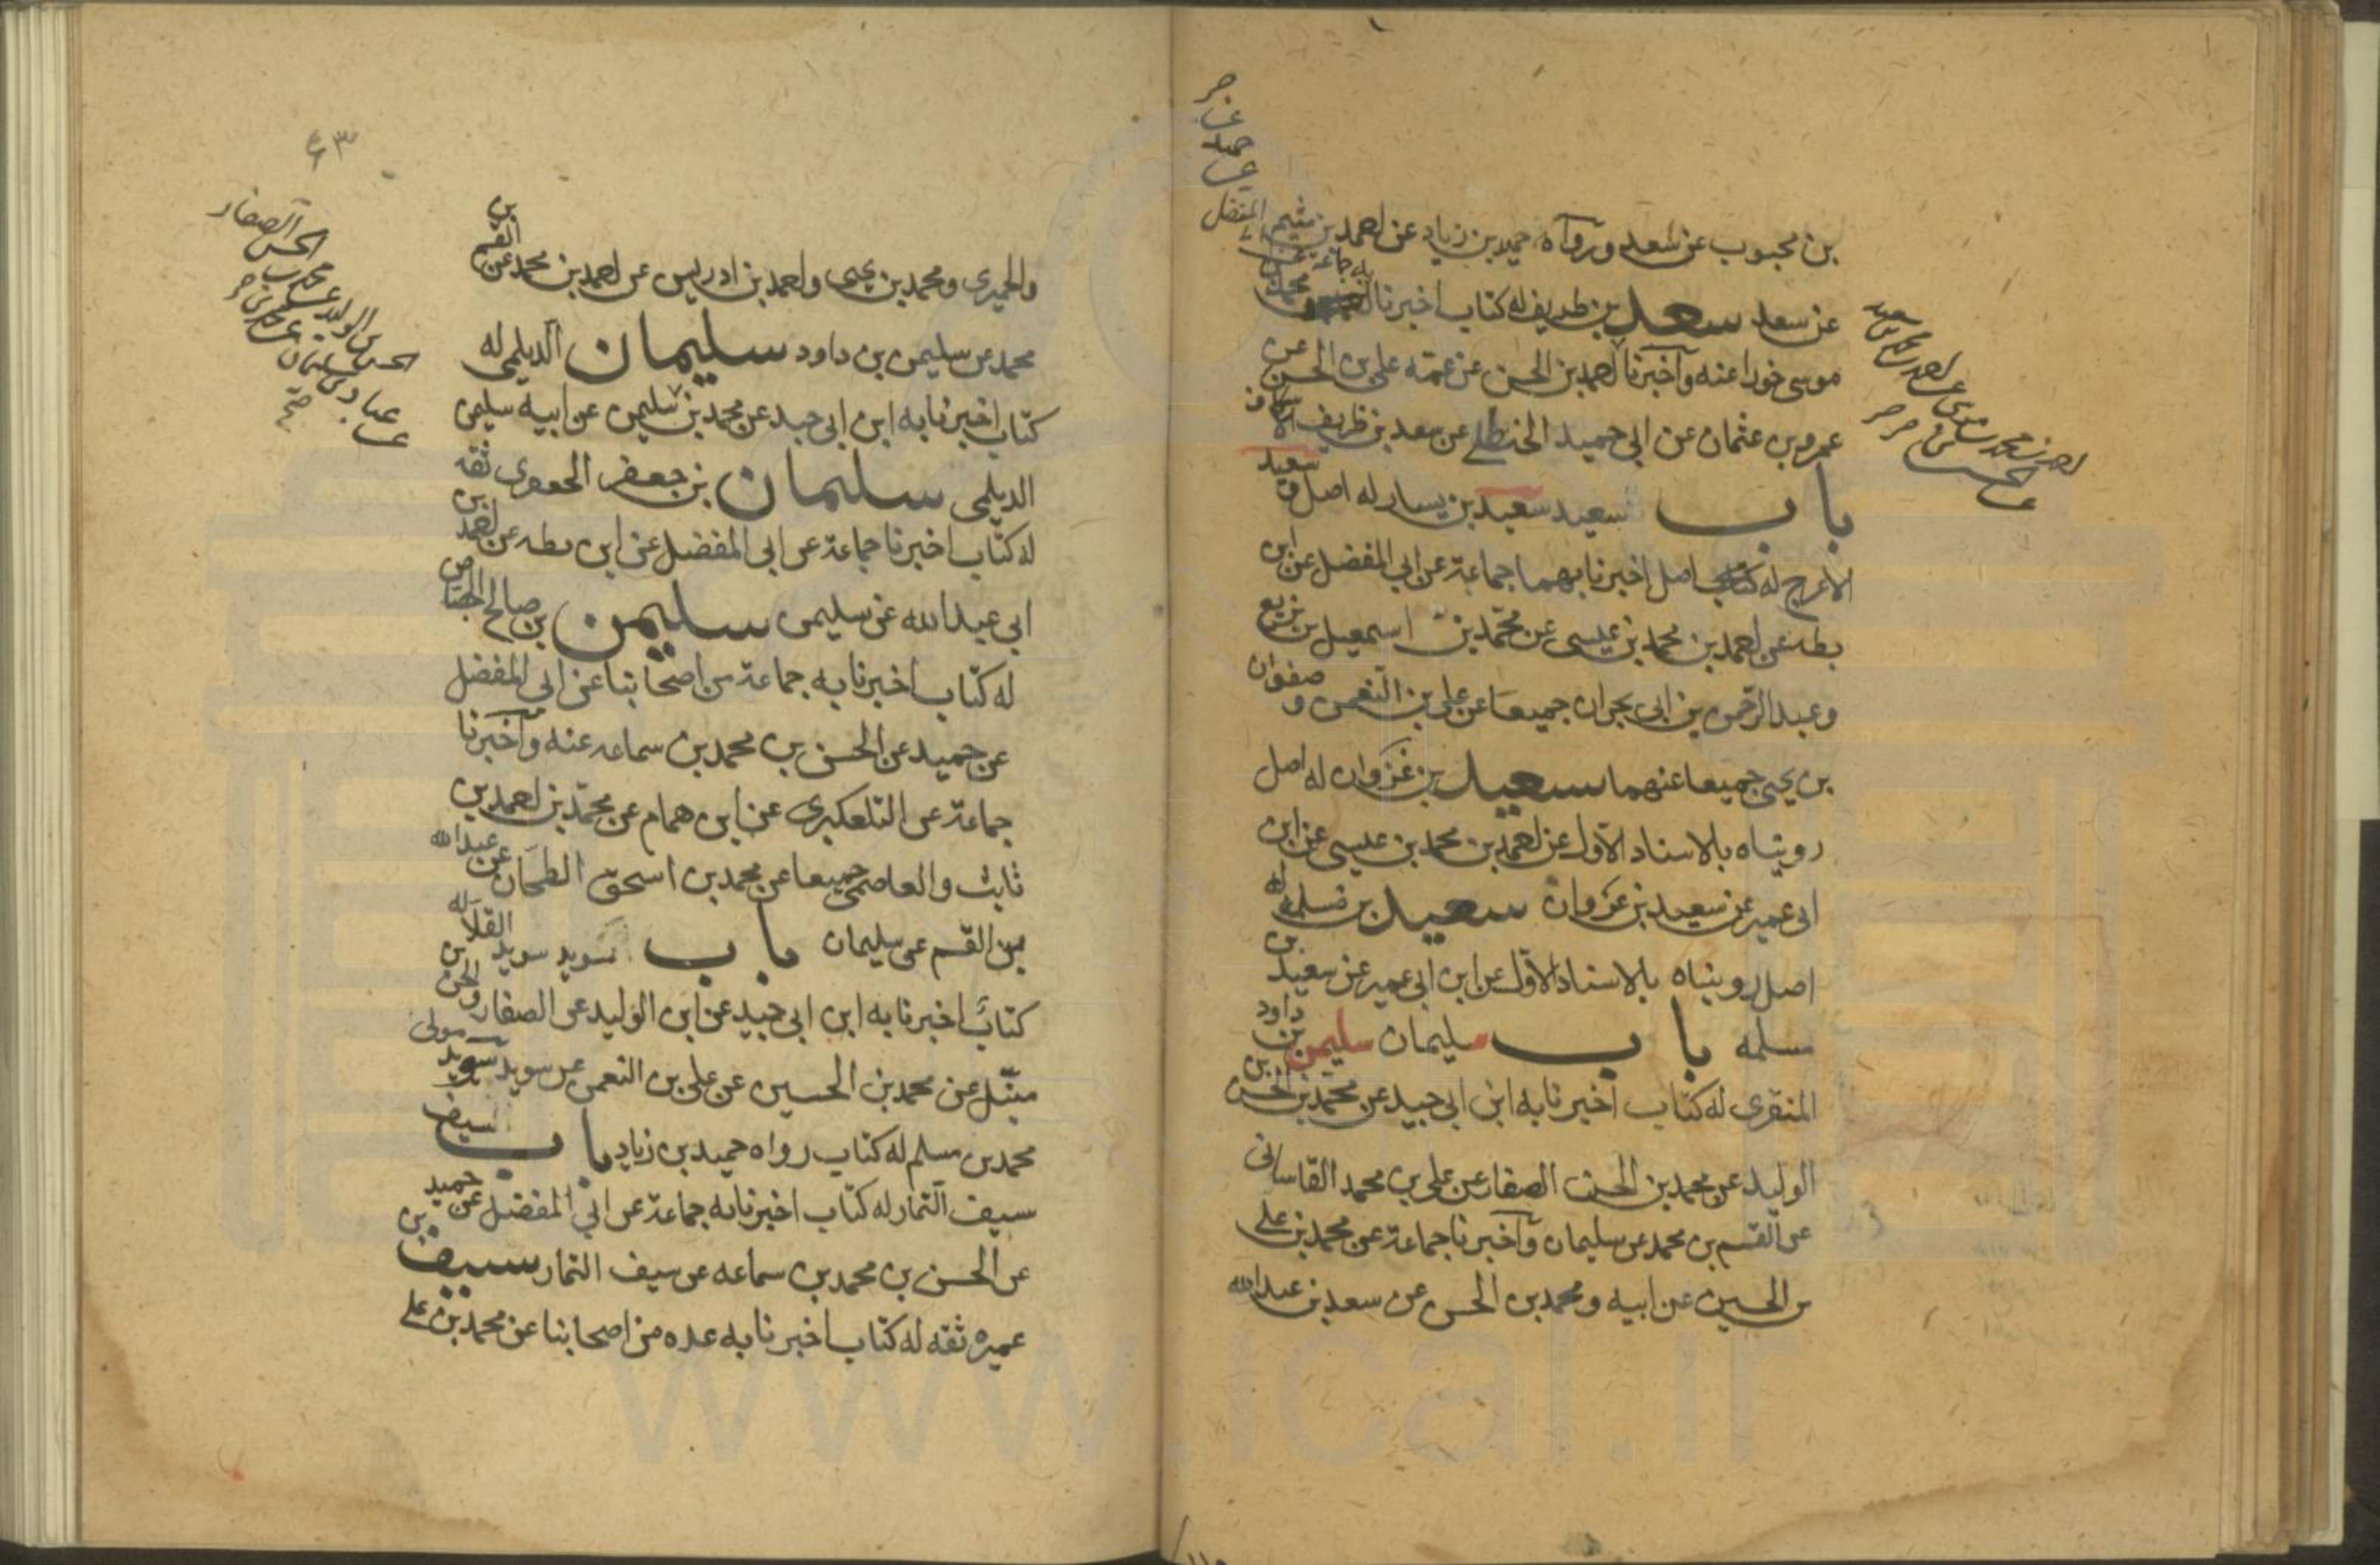 بن محبوب عن سعد ورواه حميد بن زياد عن احمد بن ميثم
عن سعد سعد بن طريف له كتاب اخبرنا به جماعة عن محمد بن
موسى خوراء عنه وآخبرنا احمد بن الحسن عن عمه على بن الحسن عن
عمرو بن عثمان عن ابى حميد الحنظلى عن سعد بن ظريف الاسكاف
باب سعيد سعيد بن يسار له اصل و سعيد
الاعرج له اصل اخبرنا بهما جماعة عن ابي المفضل عن ابن
بطه عن احمد بن محمد بن عيسى عن محمد بن اسمعيل بن بزيع
وعبد الرحمن بن ابى نجران جميعا عن على بن النعمن و صفوان
بن يحيى جميعا عنهما سعيد بن غزوان له اصل
رويناه بالاسناد الاول عن احمد بن محمد بن عيسى عن ابن
ابى عمير عن سعيد بن غزوان سعيد بن مسلمه له
اصل رويناه بالاسناد الاول عن ابن ابى عمير عن سعيد بن
مسلمه باب سليمان سليمن بن داود
المنقرى له كتاب اخبرنا به ابن ابى جيد عن محمد بن الحسن بن
الوليد عن محمد بن الحسن الصفار عن على بن محمد القاسانى
عن القسم بن محمد عن سليمان وآخبرنا جماعة عن محمد بن على
بن الحسين عن ابيه ومحمد بن الحسن عن سعد بن عبد الله
۶۳
والحميرى ومحمد بن يحيى واحمد بن ادريس عن احمد بن محمد عن القسم بن
محمد عن سليمن بن داود سليمان الديلمى له
كتاب اخبرنا به ابن ابى جيد عن محمد بن سليمن عن ابيه سليمن
الديلمى سليمان بن جعفر الجعفرى ثقه
له كتاب اخبرنا جماعة عن ابى المفضل عن ابن بطه عن احمد بن
ابى عبد الله عن سليمن سليمن بن صالح الجصاص
له كتاب اخبرنا به جماعة من اصحابنا عن ابى المفضل
عن حميد عن الحسن بن محمد بن سماعه عنه وآخبرنا
جماعة عن التلعكبرى عن ابن همام عن محمد بن احمد بن
ثابت والعاصمى جميعا عن محمد بن اسحق الطحان عن عبد الله
بن القسم عن سليمان باب سويد سويد القلا له
كتاب اخبرنا به ابن ابى جيد عن ابن الوليد عن الصفار والحسن بن
متيل عن محمد بن الحسين عن على بن النعمن عن سويد سويد مولى
محمد بن مسلم له كتاب رواه حميد بن زياد باب سيف
سيف التمار له كتاب اخبرنا به جماعة عن ابي المفضل عن حميد
عن الحسن بن محمد بن سماعه عن سيف التمار سيف بن
عميره ثقه له كتاب اخبرنا به عده من اصحابنا عن محمد بن على
www.ical.ir